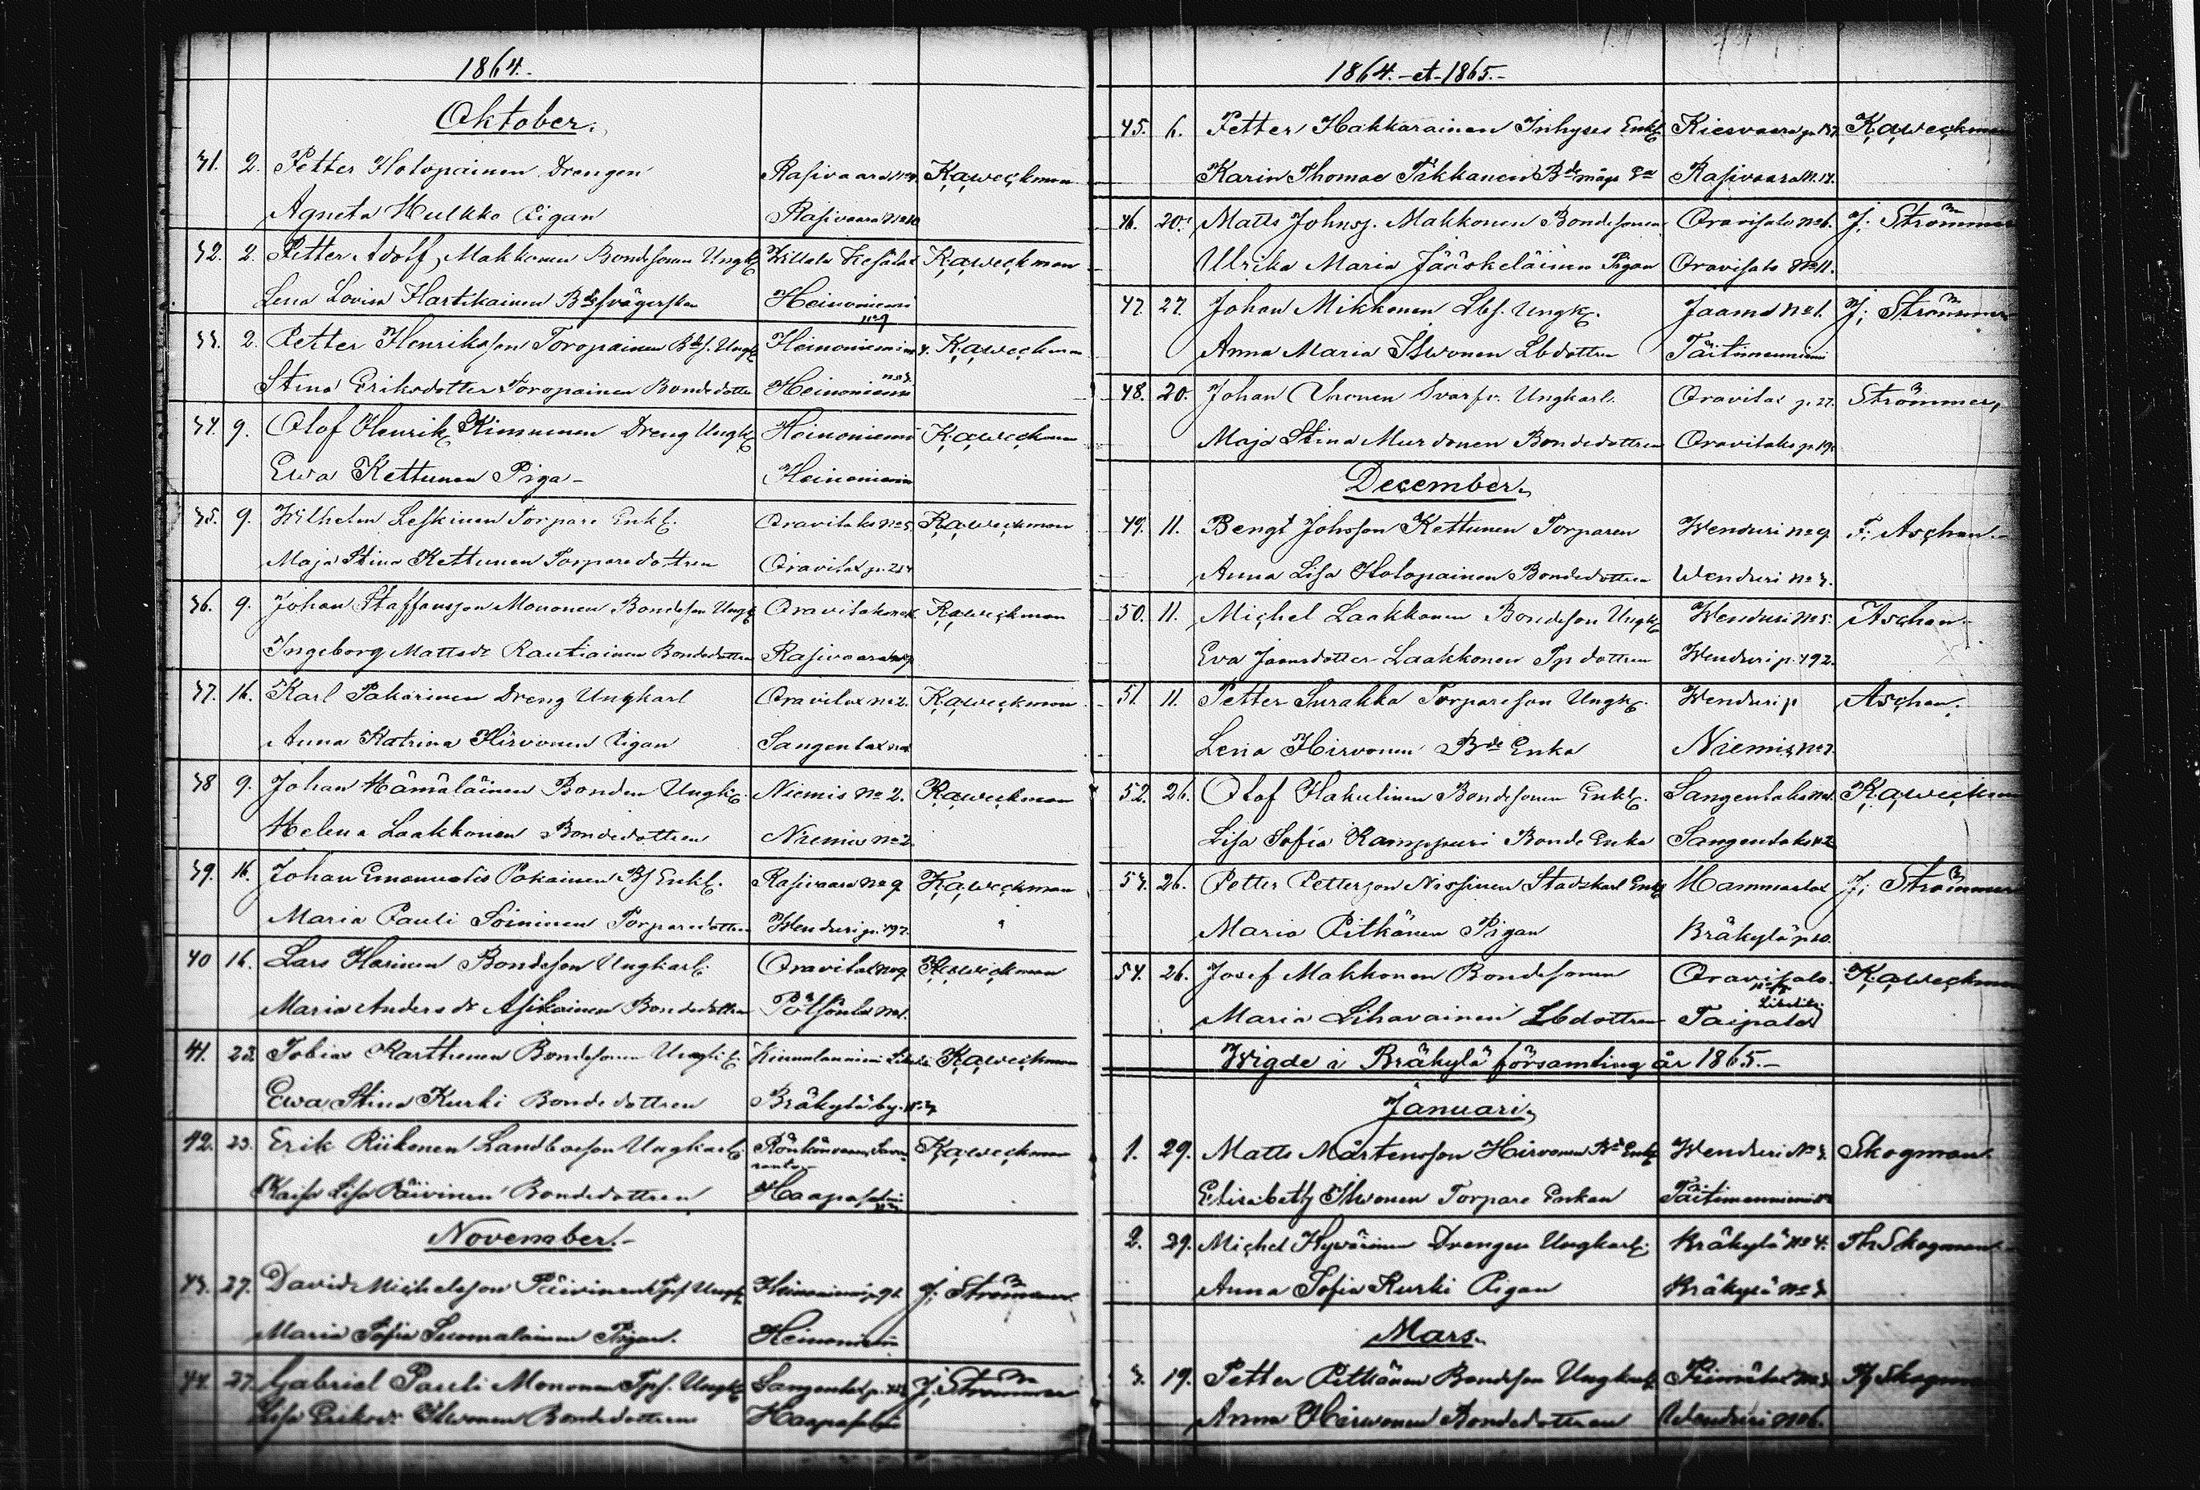 1864.
Oktober.
31. 2. Petter Holopainen Drengen Rasivaara K,a,weckman
Agneta Hulkko Pigan Rasivaara No 10
32. 2. Petter Adolf Makkonen Bondesonen Ungk. K,a,weckman
Lena Lovisa Hartikainen Bdesvägerskan Heinoniemi
33. 2. Petter Henriksson Toropainen Bds. Ungk. Heinoniemi K,a,weckman
Stina Eriksdotter Toropainen Bondedotter Heinoniemi
34. 9. Olof Henrik Kinnunen Dreng Ungk. Heinoniemi K,a,weckman
Ewa Kettunen Piga - Heinoniemi
35. 9. Wilhelm Leskinen Torpare Enkl. Oravilaks No 5 K,a,weckman
Maja Stina Kettunen Torparedottren Oravilax p.
36. 9. Johan Staffansson Mononen Bondeson Ungk. Oravilaks K,a,weckman
Ingeborg Mattsdr Rautiainen Bondedottren Rasivaara
37. 16. Karl Pakarinen Dreng Ungkarl Oravilax No 2. K,a,weckman
Anna Katrina Hirvonen Pigan Sangenlax
38 9. Johan Hämäläinen Bonden Ungk. Niemis No 2. K,a,weckman
Helena Laakkonen Bondedottren Niemis No 2
39. 16. Johan Emanuelss Pakainen Bs Enkl. Rasivaara No 9 K,a,weckman
Maria Pauli Soininen Torparedottren Wenduri p. 497.
40 16. Lars Harinen Bondeson Ungkarl. Oravilax No 9. K,a,weckman
Maria Anders dr Asikainen Bondedottren Potsönlax No 1.
41. 23. Tobias Karttunen Bondesonen Ungk. Kinnulanniemi K,a,weckman
Ewa Stina Kurki Bondedottren Bräkylä by.
42. 23. Erik Riikonen Landboeson Ungkarl. K,a,weckman
Kaisa Lisa Päivinen Bondedottren Haapasalmi
November. -
43. 27. David Michelsson Päivinen Tps Ungk. Heinoniemi J; Strömmer
Maria Sofia Suomalainen Pigan. Heinoniemi
44. 27. Gabriel Pauli Mononen Tps. Ungk. Sangenlax p. J; Strömmer
Lisa Eriksdr Ihwonen Bondedottren Haapasalmi
1864. - et - 1865. -
45. 6. Petter Hakkarainen Inhyses Enkl. Kiesvaara p. 137. K,a,weckman
Karin Thomae Pikkanen Bdemågs Rasivaara No 14.
46. 20. Matts Johnsg. Makkonen Bondesonen Oravisalo No 6. J; Strömmer
Ulrika Maria Jääskeläinen Pigan Oravisalo No 11.
47. 27. Johan Mikkonen Lbs. Ungk. Jaama No 1. J; Strömmer
Anna Maria Ihwonen Lbdottren Täitimenniemi
48. 20. Johan Ungkarl. Oravilax p. 27. Strömmer,
Maja Stina Murdonen Bondedottren Oravilaks p. 19.
December.
49. 11. Bengt Johnsson Kettunen Torparen Wenduri No 9. F; Aschan. -
Anna Lisa Holopainen Bondedottren Wenduri No 3.
50. 11. Michel Laakkonen Bondeson Ungk Wenduri No 5. Aschan. -
Eva Joansdotter Laakkonen Tpdottren Wenduri p. 492.
51. 11. Petter Surakka Torpareson Ungk. Wenduri p Aschan.
Lena Hirvonen Bde Enka Niemis No 7.
52. 26. Olof Hakulinen Bondesonen Enkl. Sangenlaks K,a,weckman
Lisa Sofia Kamppuri Bonde Enka Sangenlaks No 2
53. 26. Petter Petterson Nissinen Stadskarl Enkl Hammaslax J; Strömmer
Maria Pitkänen Pigan Bräkylä p. 10.
54. 26. Josef Makkonen Bondesonen Oravisalo K,a,weckman
Maria Lihavainen Lbdottren Taipale Libelits
Wigde i Bräkylä församling år 1865. -
Januari.
1. 29. Matts Mårtensson Hirvonen Bde Enkl Wenduri No 3. Skogman.
Elisabeth Ihwonen Torpare Enkan Täitimenniemi
2. 29. Michel Hyvärinen Drengen Ungkarl. Bräkylä No 4. Th Skogman
Anna Sofia Kurki Pigan Bräkylä No 3
Mars.
3. 19. Petter Pitkänen Bondeson Ungkarl. Skogman
Anna Hirwonen Bondedottren Wenduri No 6.